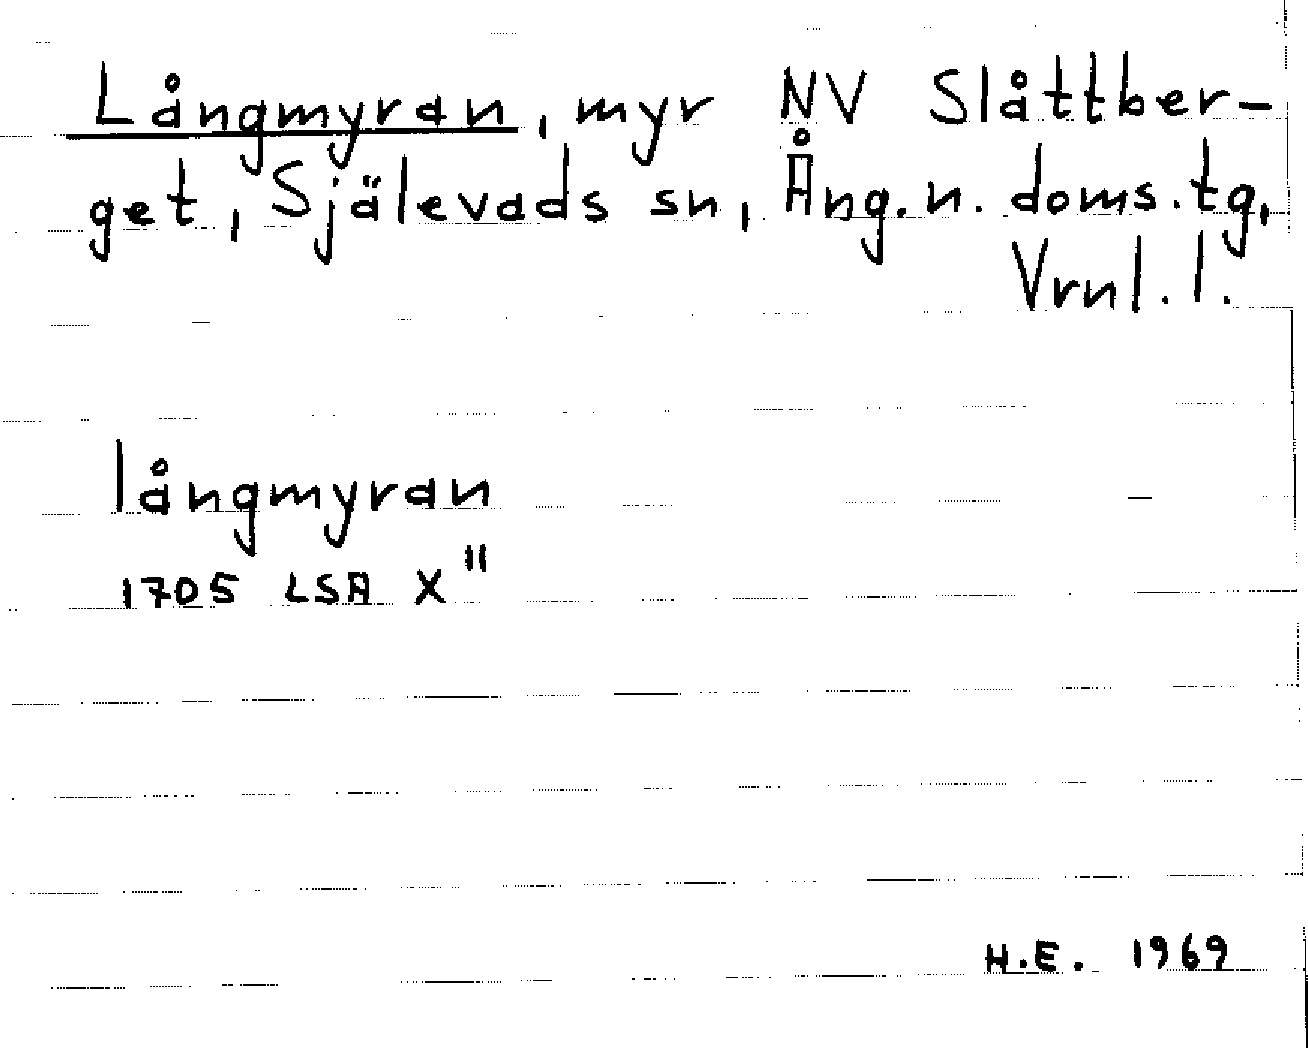 Långmyran, myr NV Slåttber-
get, Själevads sn, Ång.n. doms.tg,
Vrnl.l.
långmyran
1705 LSA X"
H.E. 1969